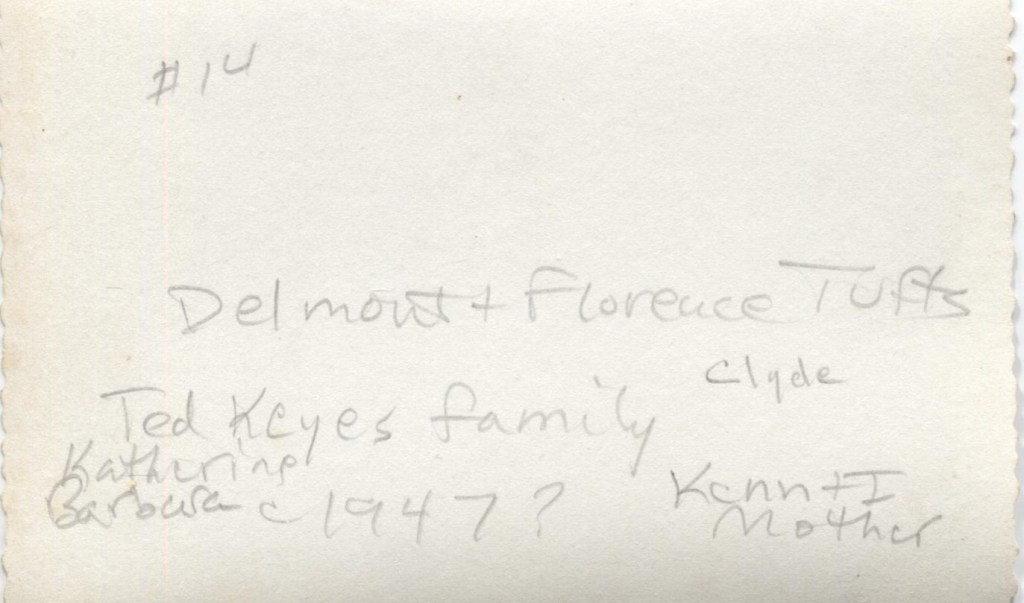 #14
Delmont + Florence Tufts
Clyde
Ted Keyes family
Katherine
Barbara c 1947?
Kenn + I
Mother